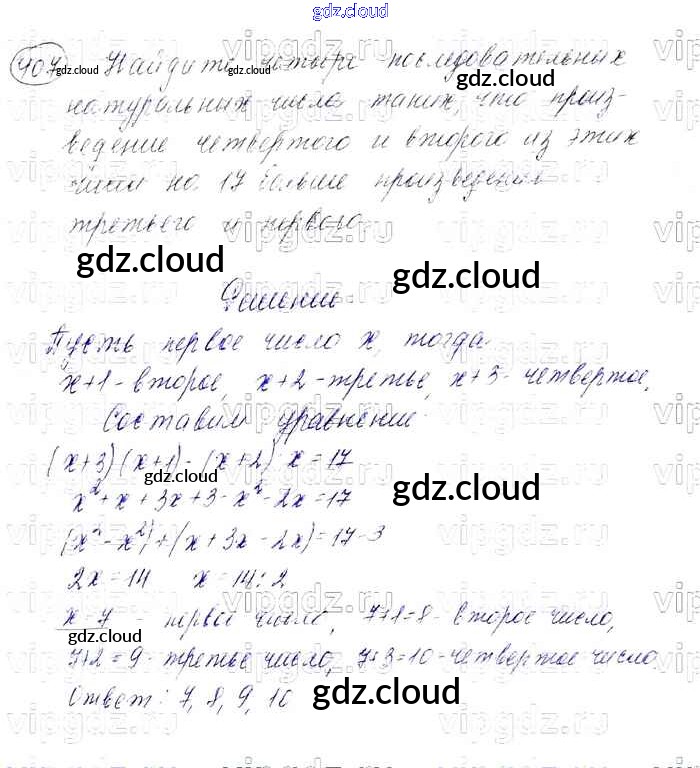 gdz.cloud
407 Найдите четыре последовательных
натуральных числа таких, что произ-
ведение четвертого и второго из этих
чисел на 17 больше произведения
третьего и первого
gdz.cloud gdz.cloud
Решение
Пусть первое число x, тогда
x+1 - второе, x+2 - третье, x+3 - четвертое.
Составим уравнение
(x+3)(x+1) - (x+2) x = 17
gdz.cloud
x²+x+3x+3-x²-2x=17
gdz.cloud
(x²-x²)+(x+3x-2x)=17-3
2x=14 x=14:2
x=7 - первое число, 7+1=8 - второе число,
gdz.cloud
7+2=9 - третье число, 7+3=10 - четвертое число
Ответ: 7, 8, 9, 10
gdz.cloud